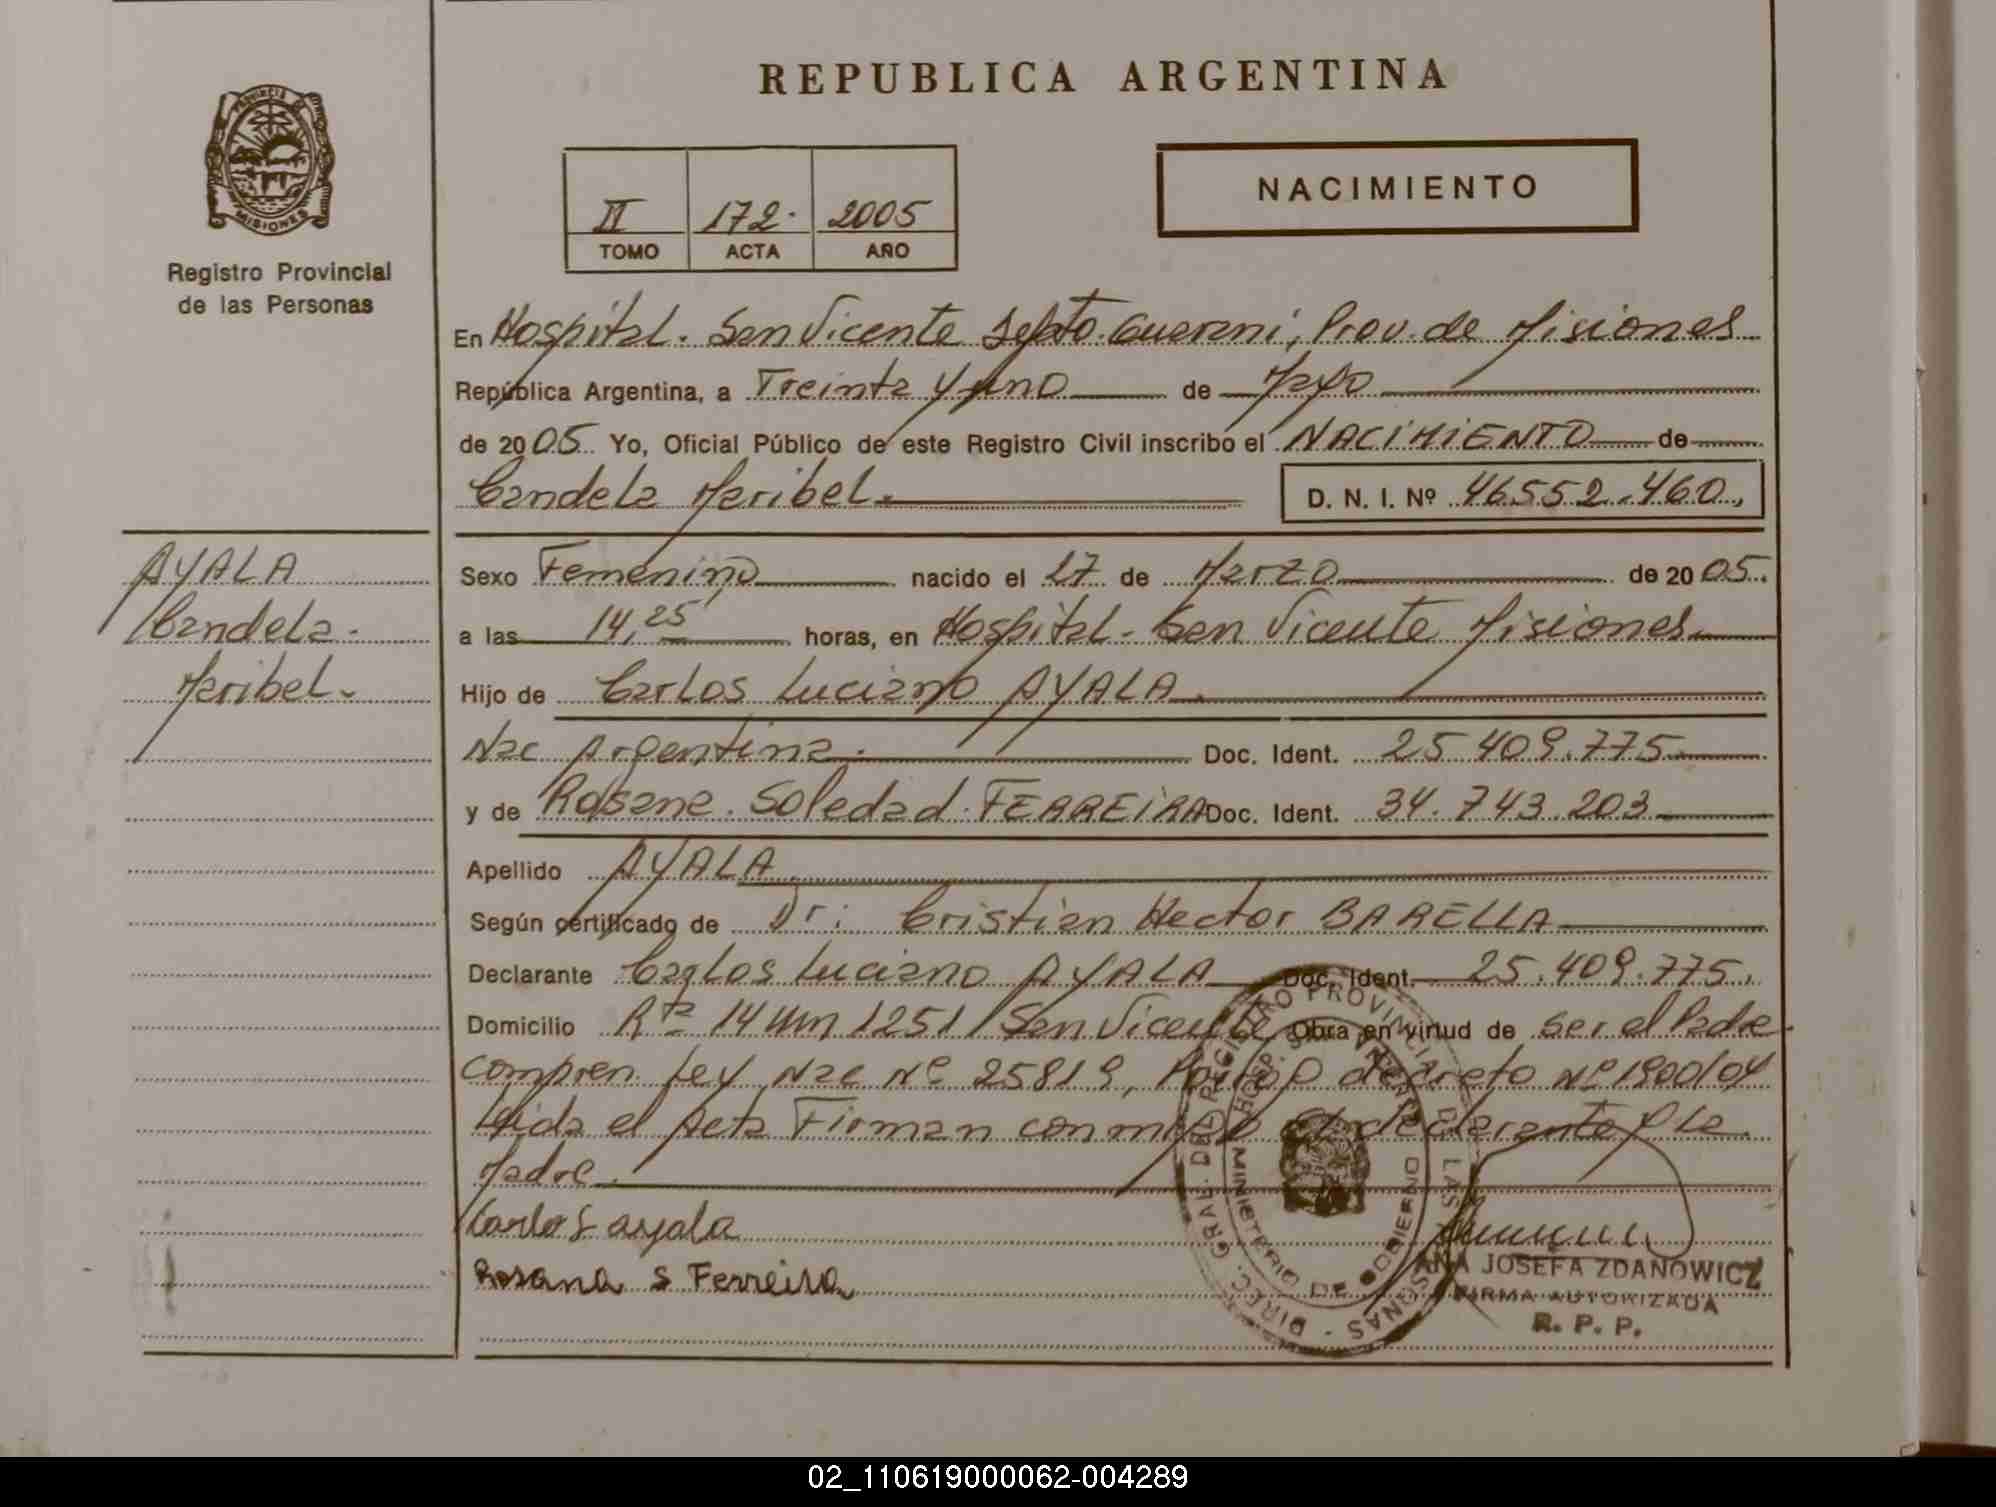 REPUBLICA ARGENTINA
PROVINCIA DE
MISIONES
Registro Provincial
de las Personas
II 172. 2005
TOMO ACTA AÑO
NACIMIENTO
En Hospital. San Vicente Depto. Guarani, Prov. de Misiones
República Argentina, a Treinta y uno de Mayo
de 2005. Yo, Oficial Público de este Registro Civil inscribo el NACIMIENTO de
Candela Maribel. D. N. I. Nº 46552.460,
AYALA
Candela.
Maribel.
Sexo Femenino nacido el 17 de Marzo de 2005.
a las 14,25 horas, en Hospital. San Vicente Misiones
Hijo de Carlos Luciano AYALA.
Nac Argentina. Doc. Ident. 25 409.775
y de Rosana. Soledad. FERREIRA Doc. Ident. 34.743.203
Apellido AYALA
Según certificado de Dr: Cristian Hector BARELLA
Declarante Carlos Luciano AYALA Doc. Ident. 25.409.775.
Domicilio Rta 14 Km 1251 San Vicente Obra en virtud de ser el Padre
compren. Ley Nac Nº 25819, decreto Nº 1900/04
Leida el Acta Firman conmigo el declarante y la
Madre.
Carlos L ayala
Rosana S Ferreira
DIREC. GRAL. DEL REGISTRO PROVINCIAL DE LAS PERSONAS -
HOSP. SAN VICENTE
MINISTERIO DE GOBIERNO
ANA JOSEFA ZDANOWICZ
FIRMA AUTORIZADA
R. P. P.
02_110619000062-004289